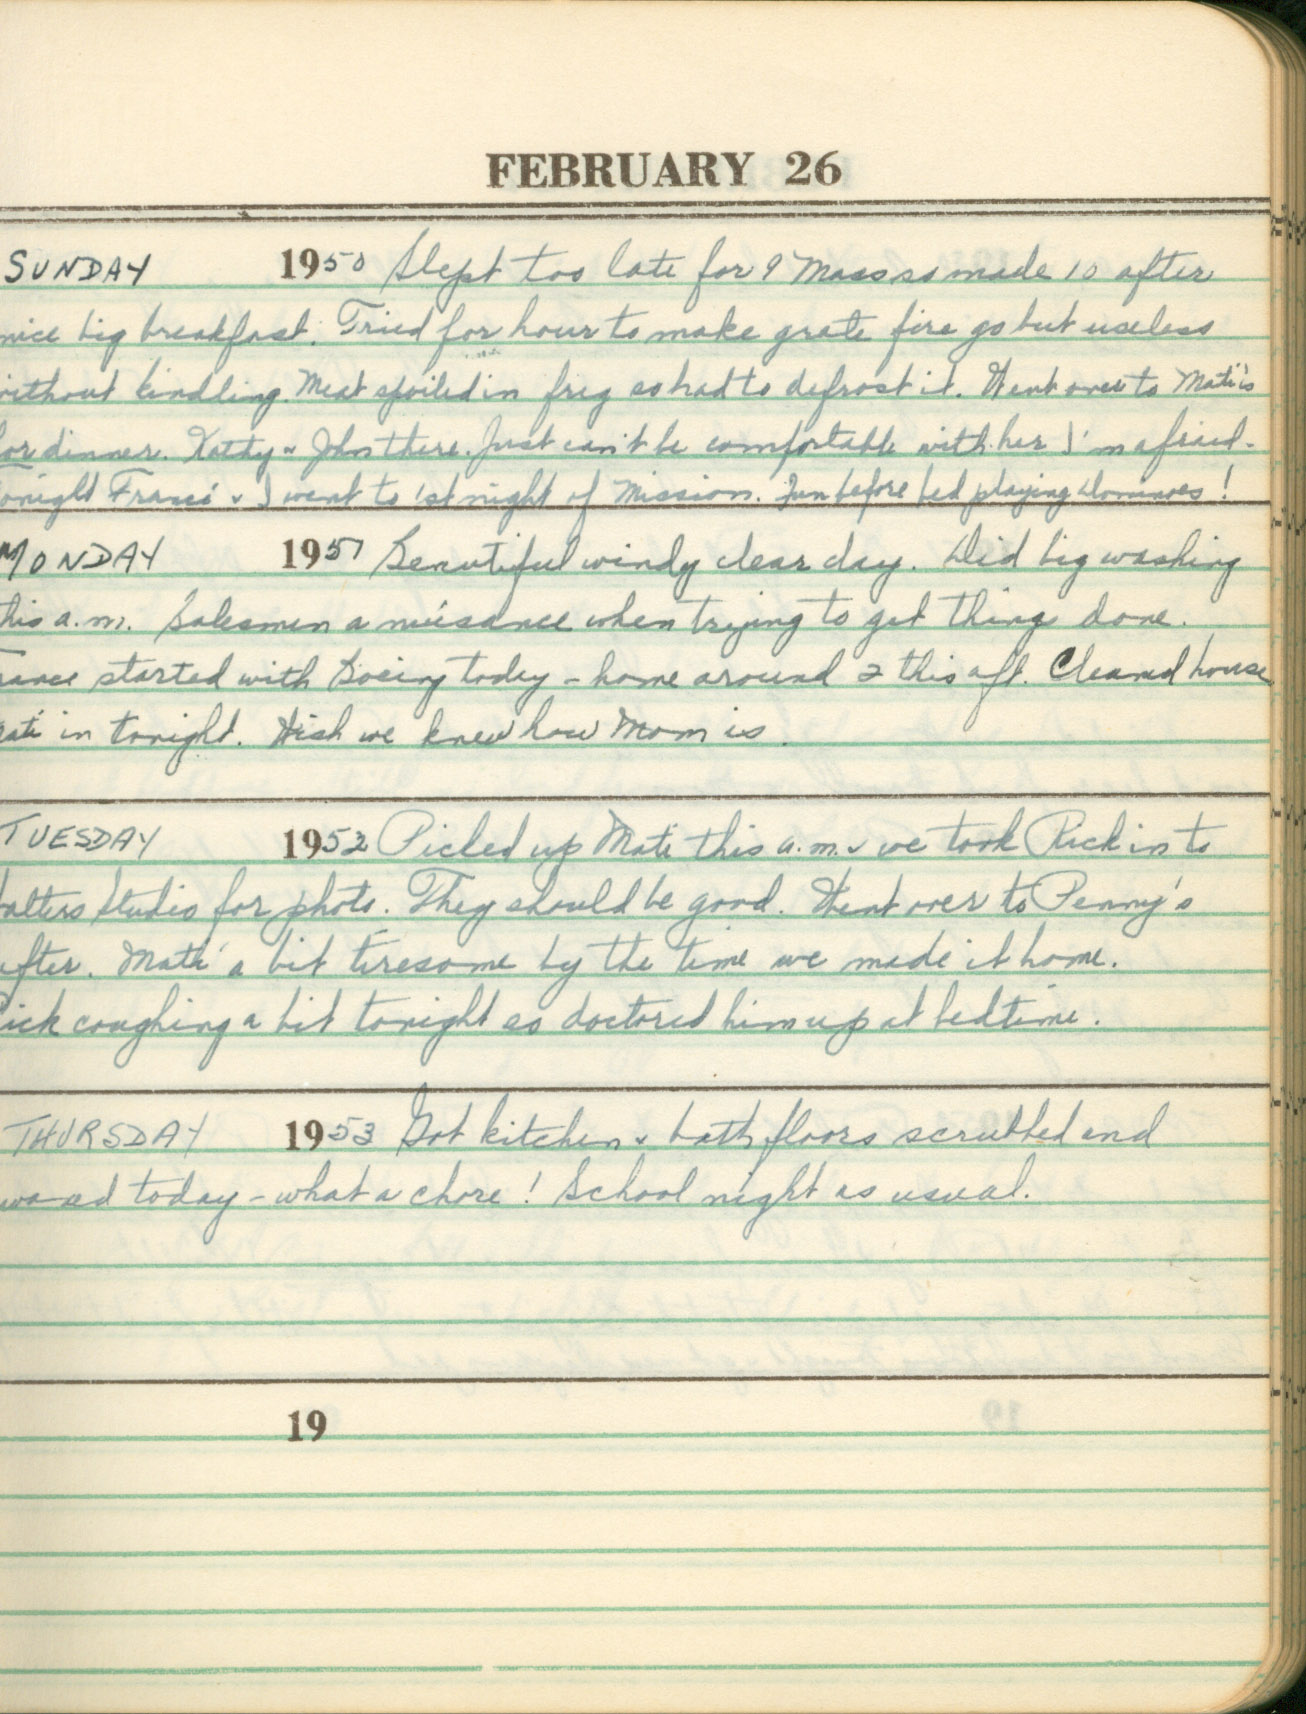 FEBRUARY 26
SUNDAY 1950 Slept too late for 9 Mass so made 10 after
nice big breakfast. Tried for hour to make grate fire go but useless
without kindling. Meat spoiled in frig so had to defrost it. Went over to Mati's
for dinner. Kathy & John there. Just can't be comfortable with her I'm afraid.
tonight & I went to 1st night of Mission. Fun before bed playing dominoes!
MONDAY 1951 Beautiful windy clear day. Did big washing
this a.m. Salesmen a nuisance when trying to get thing done.
started with Boeing today - home around 2 this aft. Cleaned house
in tonight. Wish we knew how Mom is.
TUESDAY 1952 Picked up Mati this a.m. & we took Rick in to
Studio for photo. They should be good. Went over to Penny's
after. Mati a bit tiresome by the time we made it home.
Rick coughing a bit tonight so doctored him up at bedtime.
THURSDAY 1953 Got kitchen & bath floors scrubbed and
waxed today - what a chore! School night as usual.
19